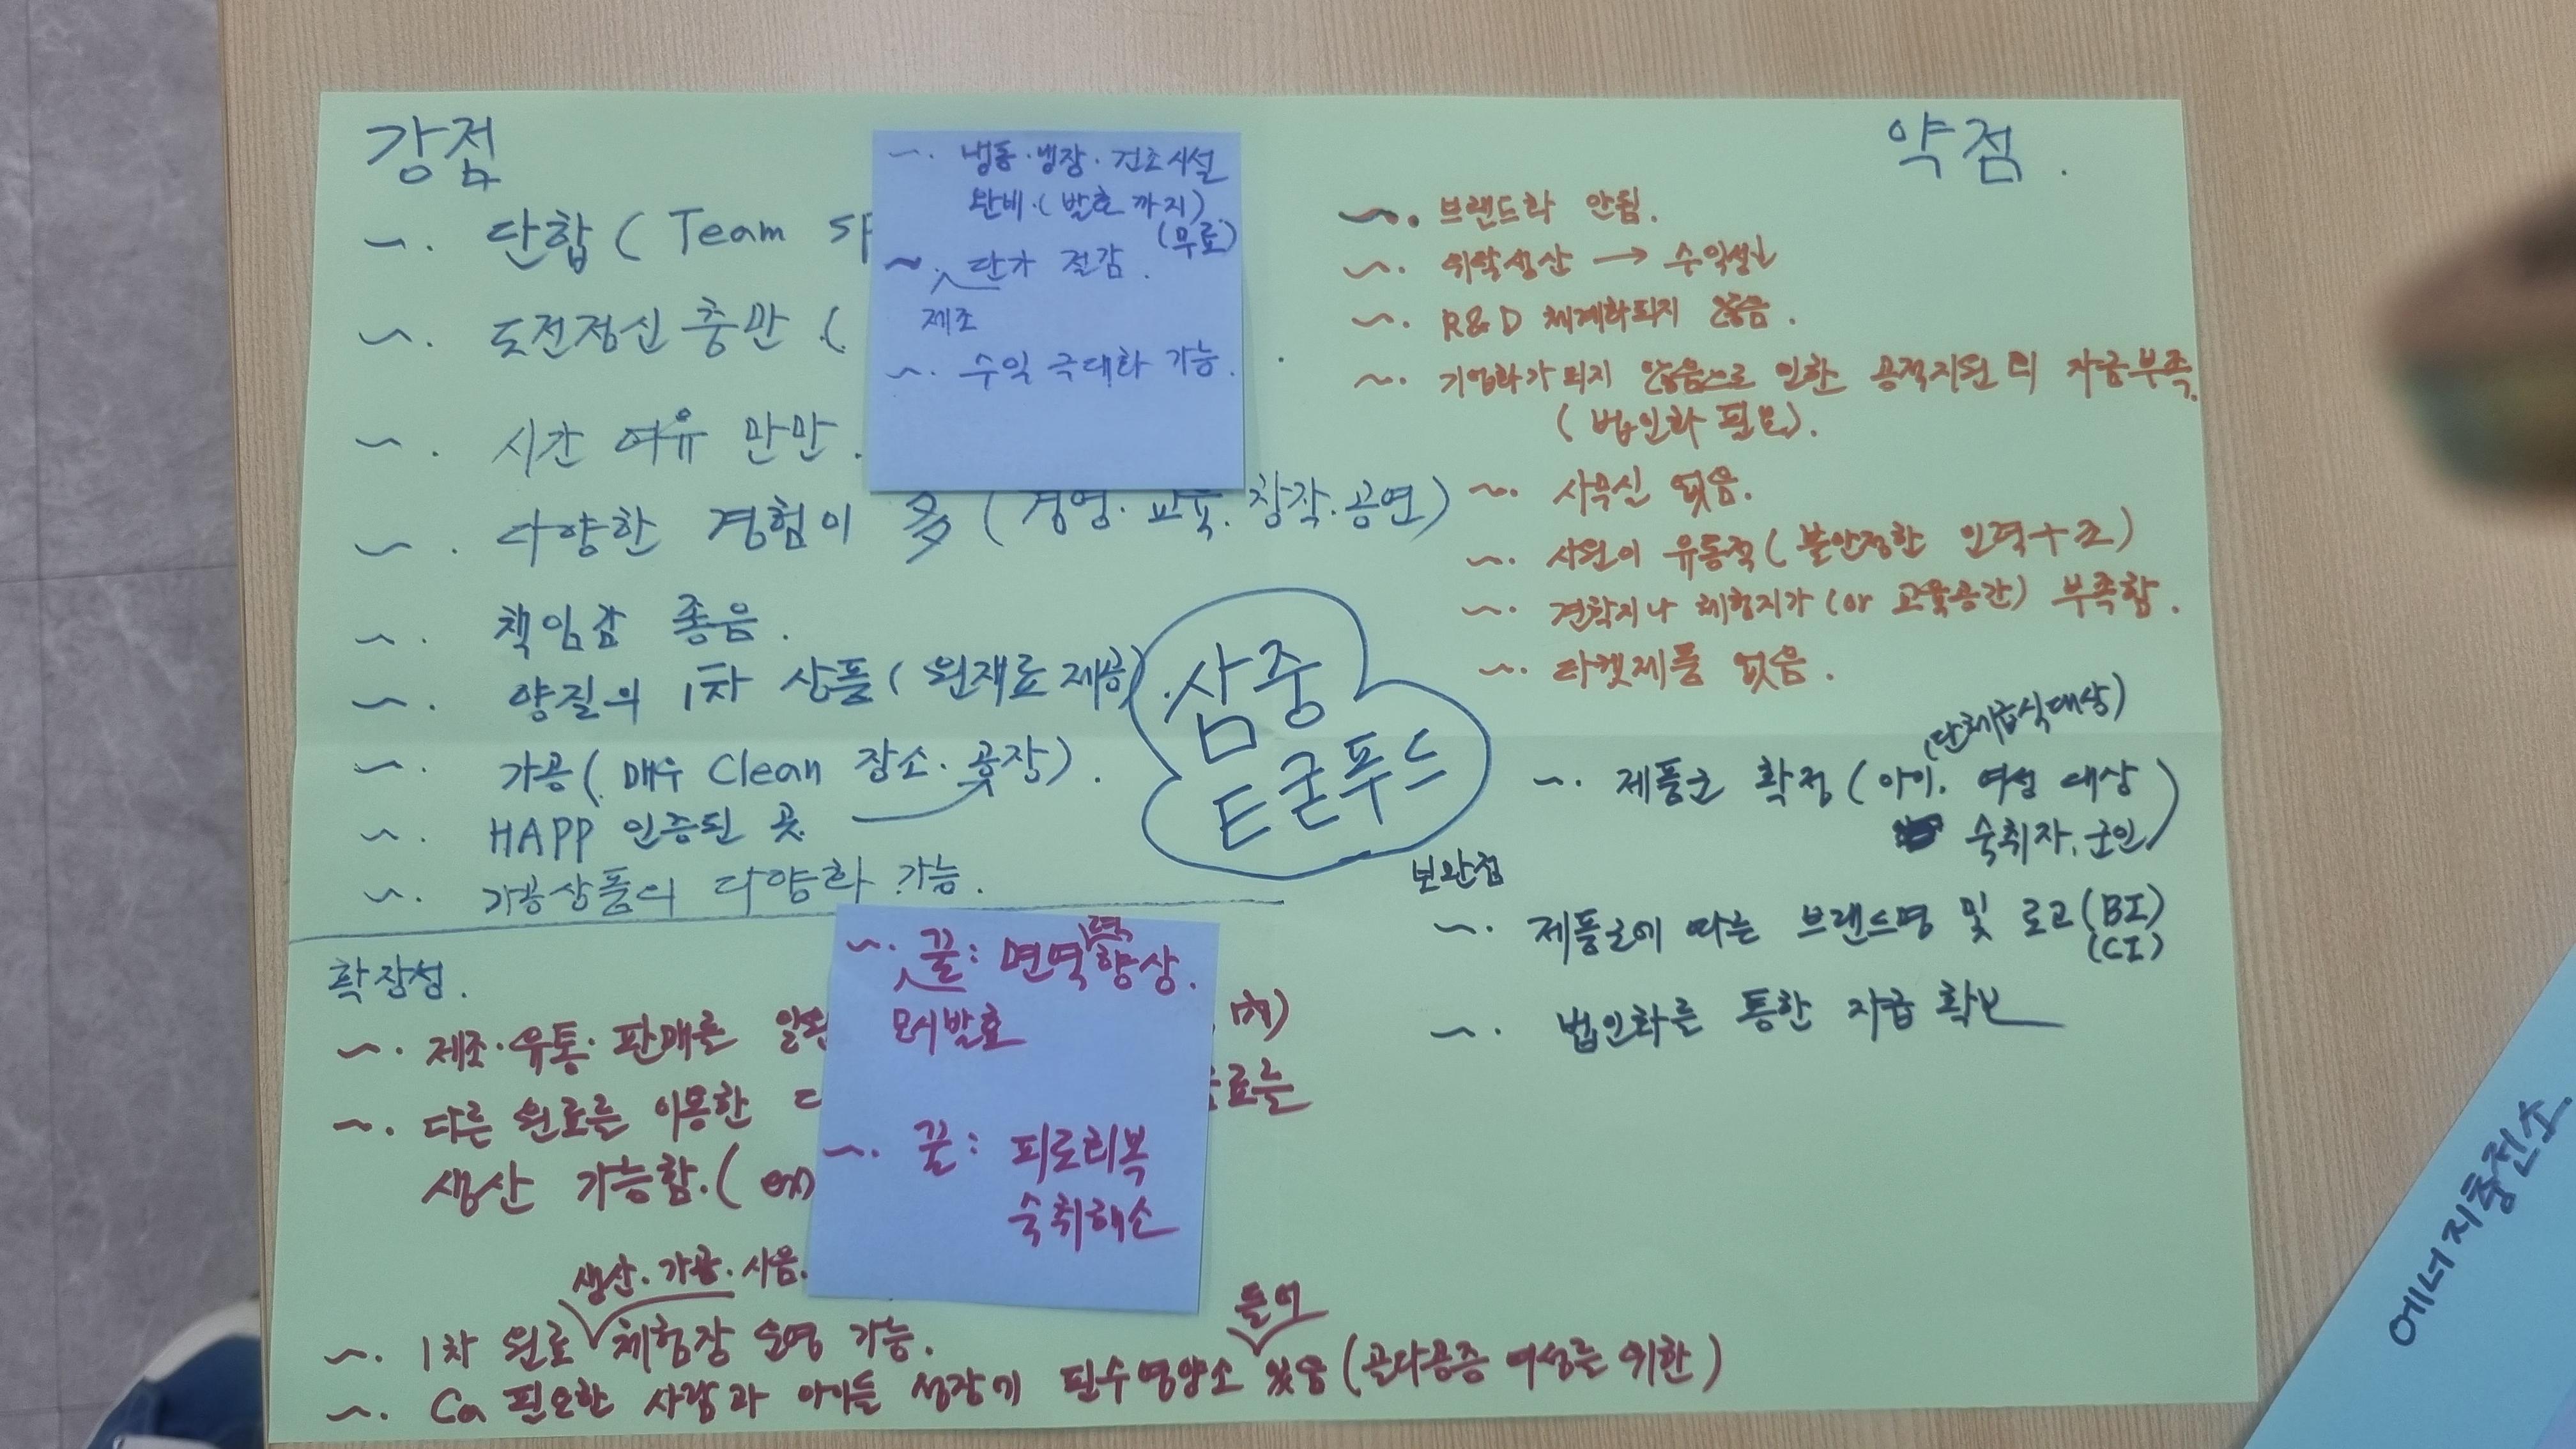 강점
~. 단합 ( Team SP
~. 도전정신 충만 (
~. 시간 여유 만만.
~. 다양한 경험이 多 ( 경영. 교육. 창작. 공연)
~. 책임감 좋음.
~. 양질의 1차 상품 ( 원재료 제공).
~. 가공 ( 매우 Clean 장소. 공장).
~. HAPP 인증된 곳
~. 가공상품의 다양화 가능.
~. 냉동. 냉장. 건조시설
완비. ( 발효까지)
(무료)
~. 단가 절감.
제조
~. 수익 극대화 가능.
약점.
~. 브랜드화 안됨.
~. 위탁생산 →
~. R&D 체계화되지 않음.
~. 기업화가 되지 않음으로 인한 공적지원의 자금부족.
( 법인화 필요).
~. 사무실 없음.
~. 사원이 유동적 ( 불안정한 인력구조)
~. 견학지나 체험지가 (or 교육공간) 부족함.
~. 타겟제품 없음.
삼중
트굳푸드
(단체급식대상)
~. 제품군 확정 ( 아이. 여성 대상
숙취자, 군인)
보완점
~. 제품군에 따른 브랜드명 및 로고 (BI)
(CI)
~. 법인화를 통한 자금 확보
확장성.
~. 제조. 유통. 판매를
~. 다른 원료를 이용한
료를
생산 가능함. ( ex)
~. 꿀 : 면역력 향상.
모시발효
~. 꿀 : 피로회복
숙취해소
생산. 가공. 사음.
~. 1차 원료 체험장 운영 가능.
들어
~. Ca 필요한 사람과 아이들 성장기 필수영양소 있음 (골다공증 여성을 위한)
에너지충전소